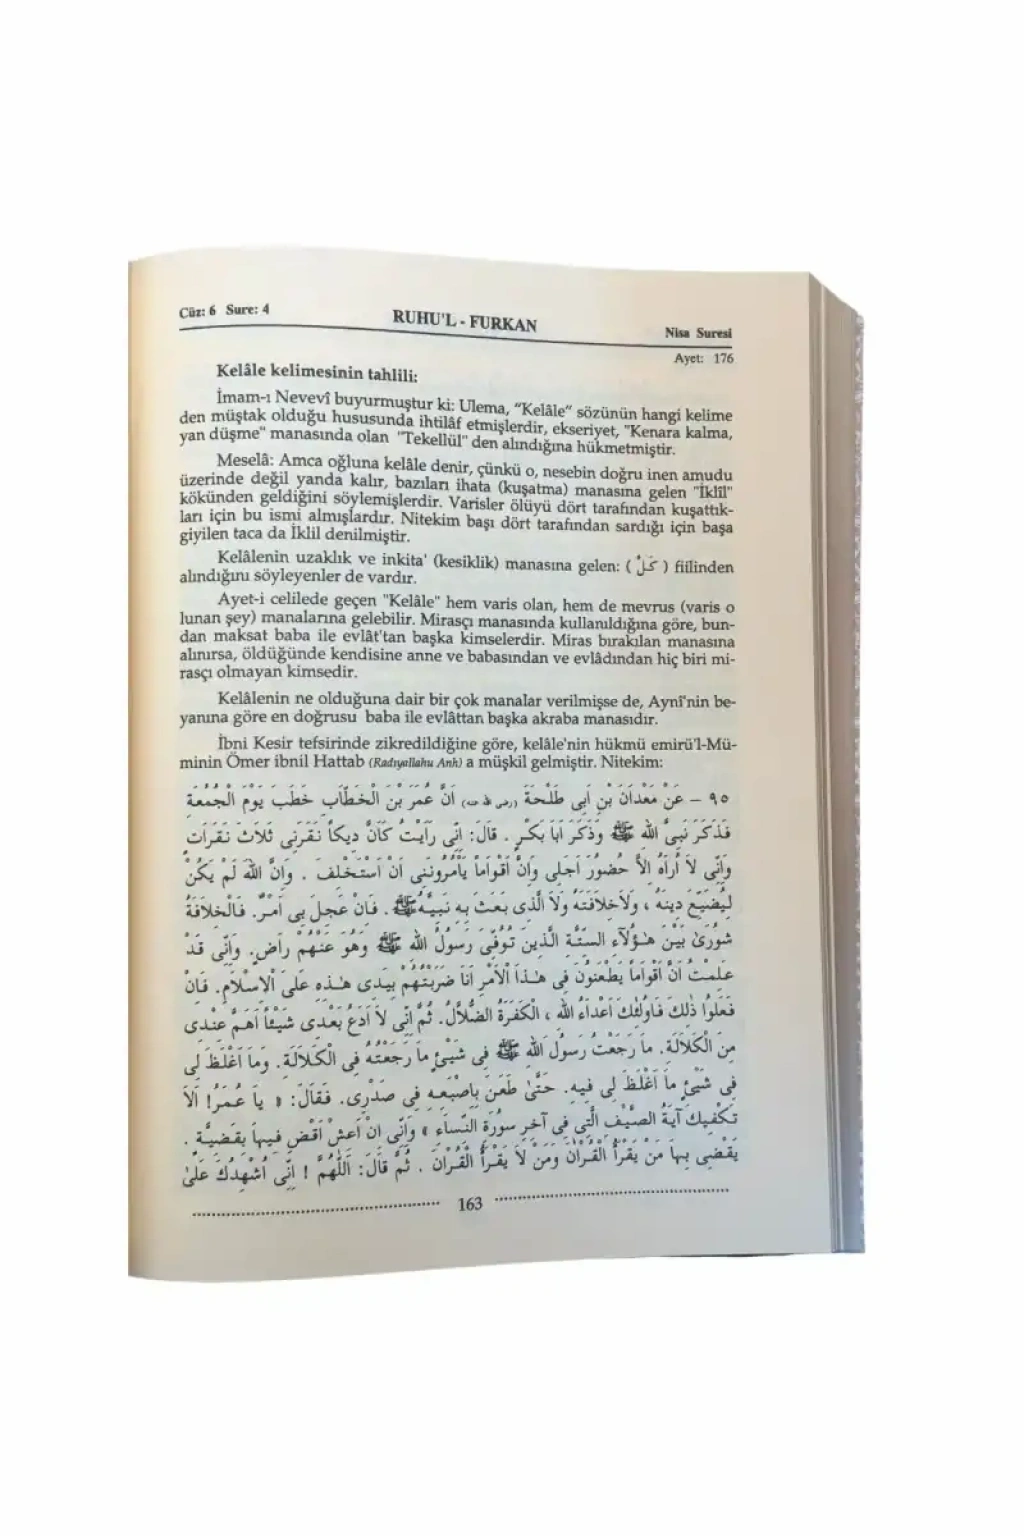 Cüz: 6 Sure: 4
RUHU'L - FURKAN
Nisa Suresi
Ayet: 176
Kelâle kelimesinin tahlili:
İmam-ı Nevevî buyurmuştur ki: Ulema, "Kelâle" sözünün hangi kelime
den müştak olduğu hususunda ihtilâf etmişlerdir, ekseriyet, "Kenara kalma,
yan düşme" manasında olan "Tekellül" den alındığına hükmetmiştir.
Meselâ: Amca oğluna kelâle denir, çünkü o, nesebin doğru inen amudu
üzerinde değil yanda kalır, bazıları ihata (kuşatma) manasına gelen "İklîl"
kökünden geldiğini söylemişlerdir. Varisler ölüyü dört tarafından kuşattık-
ları için bu ismi almışlardır. Nitekim başı dört tarafından sardığı için başa
giyilen taca da İklil denilmiştir.
Kelâlenin uzaklık ve inkita' (kesiklik) manasına gelen: ( كَلَّ ) fiilinden
alındığını söyleyenler de vardır.
Ayet-i celilede geçen "Kelâle" hem varis olan, hem de mevrus (varis o
lunan şey) manalarına gelebilir. Mirasçı manasında kullanıldığına göre, bun-
dan maksat baba ile evlât'tan başka kimselerdir. Miras bırakılan manasına
alınırsa, öldüğünde kendisine anne ve babasından ve evlâdından hiç biri mi-
rasçı olmayan kimsedir.
Kelâlenin ne olduğuna dair bir çok manalar verilmişse de, Aynî'nin be-
yanına göre en doğrusu baba ile evlâttan başka akraba manasıdır.
İbni Kesir tefsirinde zikredildiğine göre, kelâle'nin hükmü emirü'l-Mü-
minin Ömer ibnil Hattab (Radıyallahu Anh) a müşkil gelmiştir. Nitekim:
٩٥ – عَنْ مَعْدَانَ بْنِ اَبِى طَلْحَةَ اَنَّ عُمَرَ بْنَ الْخَطَّابِ خَطَبَ يَوْمَ الْجُمُعَةِ
فَذَكَرَ نَبِىَّ اللهِ ﷺ وَذَكَرَ اَبَا بَكْرٍ . قَالَ: اِنِّى رَاَيْتُ كَاَنَّ دِيكًا نَقَرَنِى ثَلَاثَ نَقَرَاتٍ
وَاِنِّى لَا اُرَاهُ اِلَّا حُضُورَ اَجَلِى وَاِنَّ اَقْوَاماً يَأْمُرُونَنِى اَنْ اَسْتَخْلِفَ . وَاِنَّ اللهَ لَمْ يَكُنْ
لِيُضَيِّعَ دِينَهُ ، وَلَاخِلَافَتَهُ وَلَا الَّذِى بَعَثَ بِهِ نَبِيَّهُ ﷺ . فَاِنْ عَجِلَ بِى اَمْرٌ. فَالْخِلَافَةُ
شُورَىٰ بَيْنَ هٰؤُلَآءِ السِّتَّةِ الَّذِينَ تُوُفِّىَ رَسُولُ اللهِ ﷺ وَهُوَ عَنْهُمْ رَاضٍ. وَاِنِّى قَدْ
عَلِمْتُ اَنَّ اَقْوَاماً يَطْعَنُونَ فِى هٰذَا الْاَمْرِ اَنَا ضَرَبْتُهُمْ بِيَدِى هٰذِهِ عَلَى الْاِسْلَامِ. فَاِنْ
فَعَلُوا ذٰلِكَ فَاُولٰئِكَ اَعْدَاءُ اللهِ ، الْكَفَرَةُ الضُّلَّالُ. ثُمَّ اِنِّى لَا اَدَعُ بَعْدِى شَيْئاً اَهَمَّ عِنْدِى
مِنَ الْكَلَالَةِ. مَا رَجَعْتُ رَسُولَ اللهِ ﷺ فِى شَيْئٍ مَا رَجَعْتُهُ فِى الْكَلَالَةِ. وَمَا اَغْلَظَ لِى
فِى شَيْئٍ مَا اَغْلَظَ لِى فِيهِ. حَتَّى طَعَنَ بِاِصْبَعِهِ فِى صَدْرِى. فَقَالَ: « يَا عُمَرُ! اَلَا
تَكْفِيكَ آيَةُ الصَّيْفِ الَّتِى فِى آخِرِ سُورَةِ النِّسَاءِ » وَاِنِّى اِنْ اَعِشْ اَقْضِ فِيهَا بِقَضِيَّةٍ .
يَقْضِى بِهَا مَنْ يَقْرَأُ الْقُرْآنَ وَمَنْ لَا يَقْرَأُ الْقُرْآنَ . ثُمَّ قَالَ: اَللّٰهُمَّ ! اِنِّى اُشْهِدُكَ عَلَىٰ
163